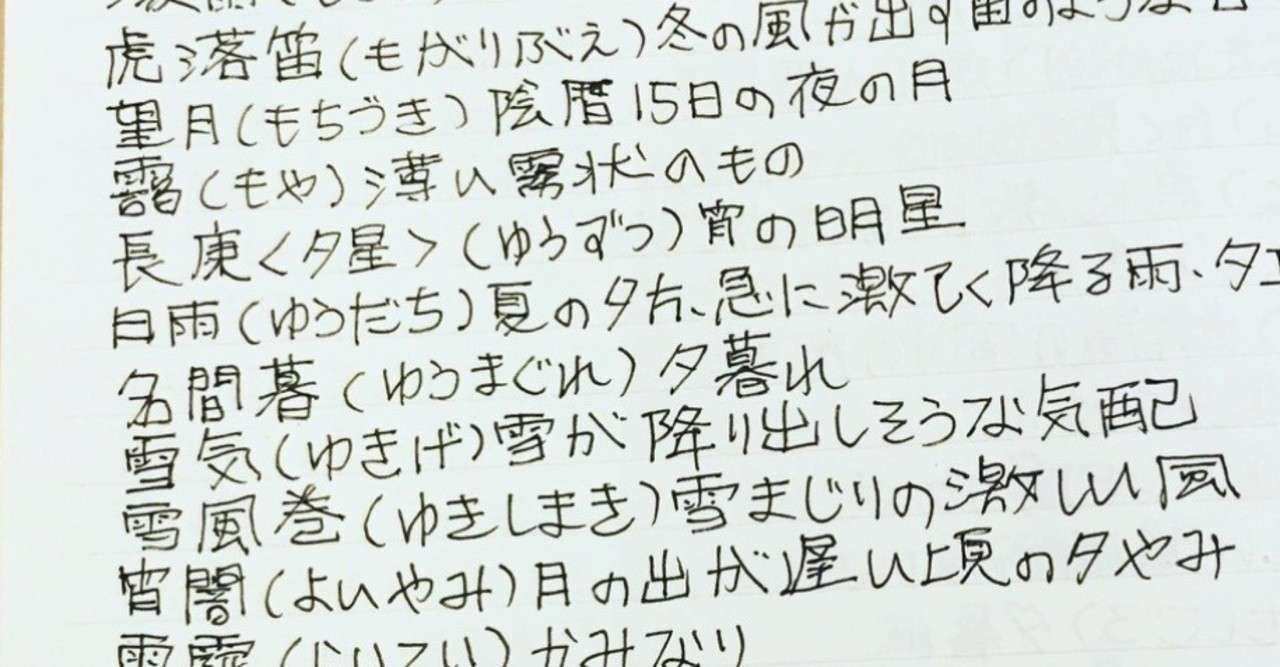 虎落笛(もがりぶえ)冬の風が出す笛のような
望月(もちづき)陰暦15日の夜の月
靄(もや)薄い霧状のもの
長庚<夕星>(ゆうずつ)宵の明星
白雨(ゆうだち)夏の夕方、急に激てく降る雨、夕立
名間暮(ゆうまぐれ)夕暮れ
雪気(ゆきげ)雪が降り出しそうな気配
雪風巻(ゆきしまき)雪まじりの激しい風
宵闇(よいやみ)月の出が遅い頃の夕やみ
(らいてい)かみなり